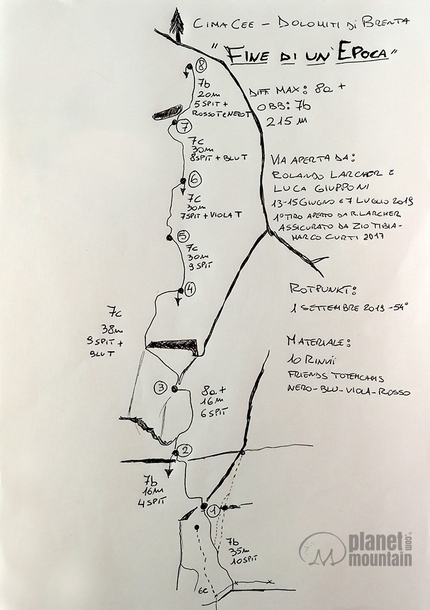 CIMA CEE - DOLOMITI DI BRENTA
"FINE DI UN'EPOCA"
DIFF MAX: 8a +
OBB: 7b
215 m
VIA APERTA DA:
ROLANDO LARCHER E
LUCA GIUPPONI
13-15 GIUGNO E 7 LUGLIO 2019
1° TIRO APERTO DA R. LARCHER
ASSICURATO DA ZIO TIBIA-
MARCO CURTI 2017
ROTPUNKT:
1 SETTEMBRE 2019
MATERIALE:
10 RINVII
FRIENDS TOTEMCAMS
NERO-BLU-VIOLA-ROSSO
8
7b
20m
5 SPIT +
ROSSO T e NERO T
7
7c
30m
8 SPIT + BLU T
6
7c
30m
7 SPIT + VIOLA T
5
7c
30m
9 SPIT
4
7c
38m
9 SPIT +
BLU T
3
8a +
16m
6 SPIT
2
7b
16m
4 SPIT
1
7b
35m
10 SPIT
6c
planet
mountain
.com